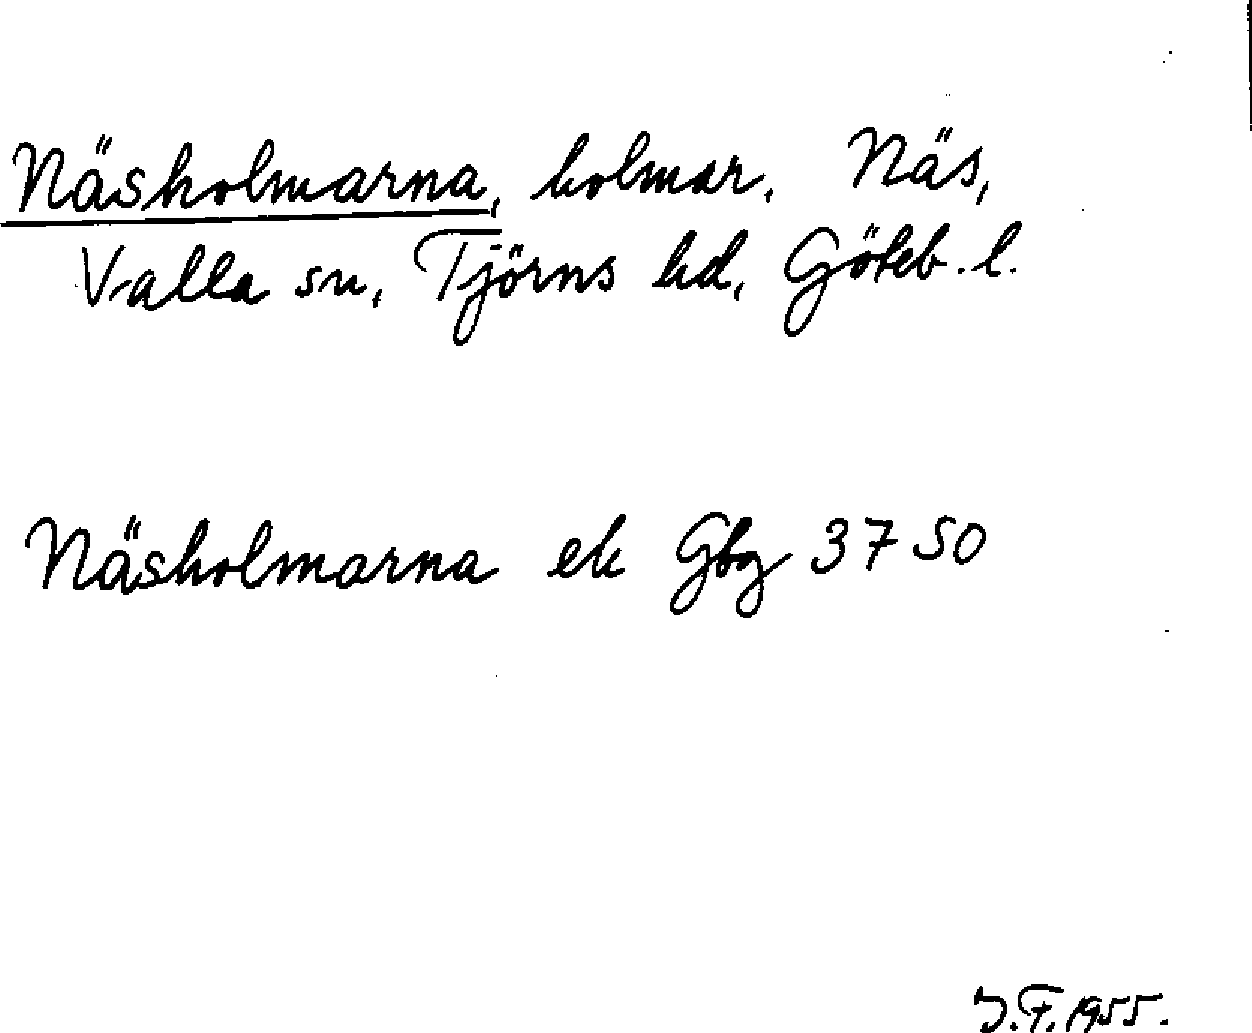 Näsholmarna, holmar, Näs,
Valla sn, Tjörns hd, Göteb. l.
Näsholmarna ek Gbg 3750
J.F. 1955.